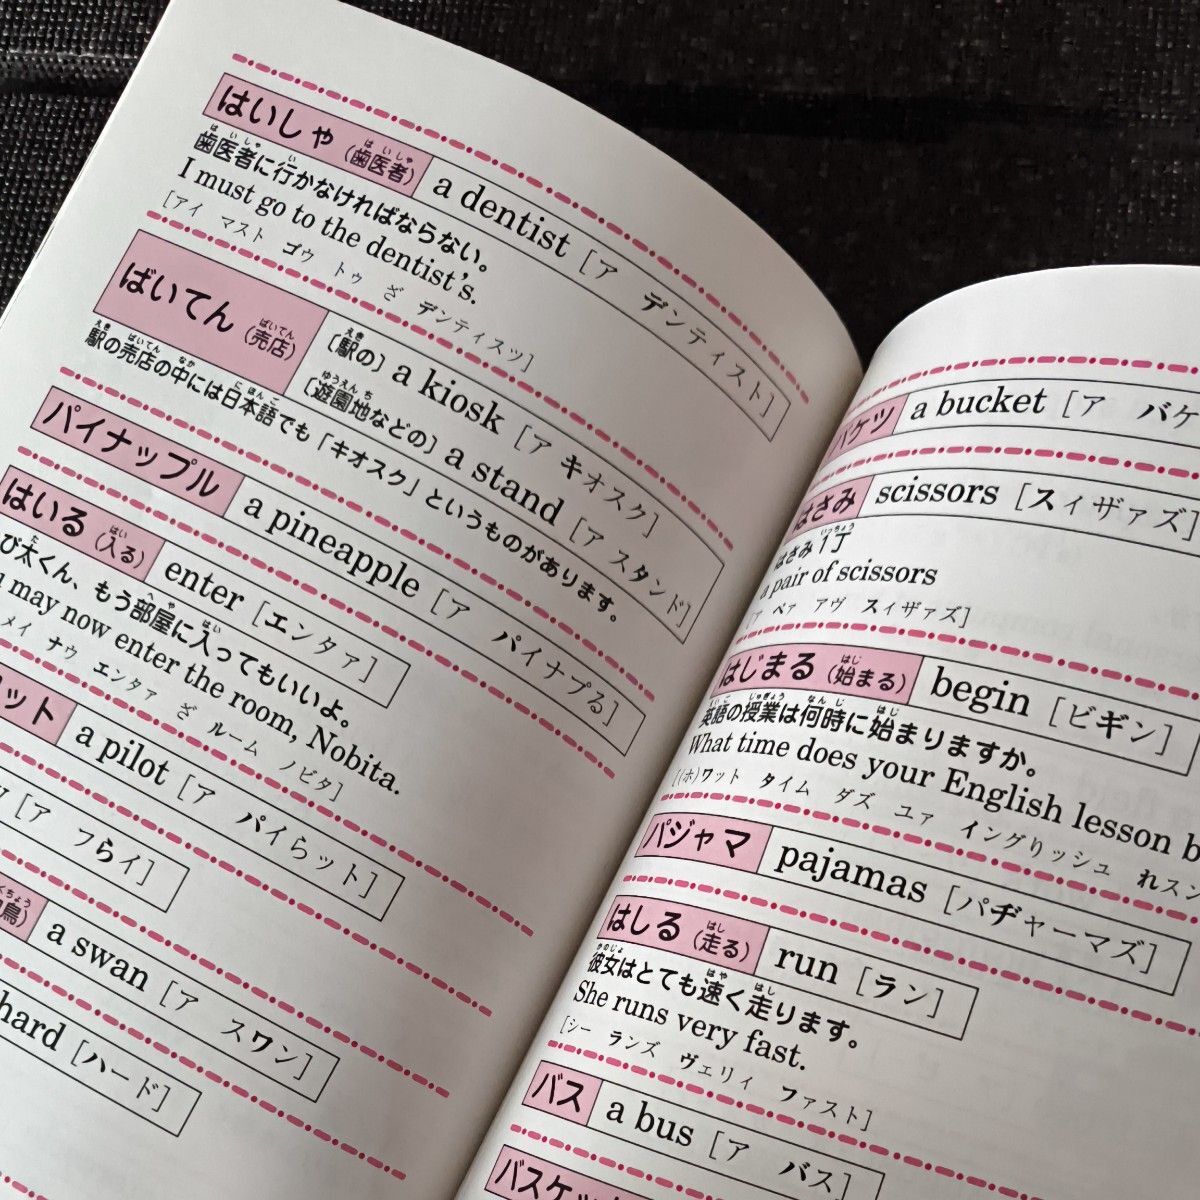 はいしゃ（歯医者） a dentist [ア デンティスト]
歯医者に行かなければならない。
I must go to the dentist's.
[アイ マスト ゴゥ トゥ ざ デンティスツ]
ばいてん（売店） 〔駅の〕a kiosk [ア キオスク]
〔遊園地などの〕a stand [ア スタンド]
駅の売店の中には日本語でも「キオスク」というものがあります。
パイナップル a pineapple [ア パイナプる]
はいる（入る） enter [エンタァ]
び太くん、もう部屋に入ってもいいよ。
may now enter the room, Nobita.
メイ ナゥ エンタァ ざ ルーム ノビタ]
ット a pilot [ア パイらット]
[ア フらイ]
鳥） a swan [ア スワン]
hard [ハード]
バケツ a bucket [ア バケ
はさみ scissors [スィザァズ]
はさみ1丁
a pair of scissors
[ア ペァ アヴ スィザァズ]
はじまる（始まる） begin [ビギン]
英語の授業は何時に始まりますか。
What time does your English lesson b
[(ホ)ワット タイム ダズ ユァ イングりッシュ れスン
パジャマ pajamas [パヂャーマズ]
はしる（走る） run [ラン]
彼女はとても速く走ります。
She runs very fast.
[シー ランズ ヴェリィ ファスト]
バス a bus [ア バス]
バスケッ